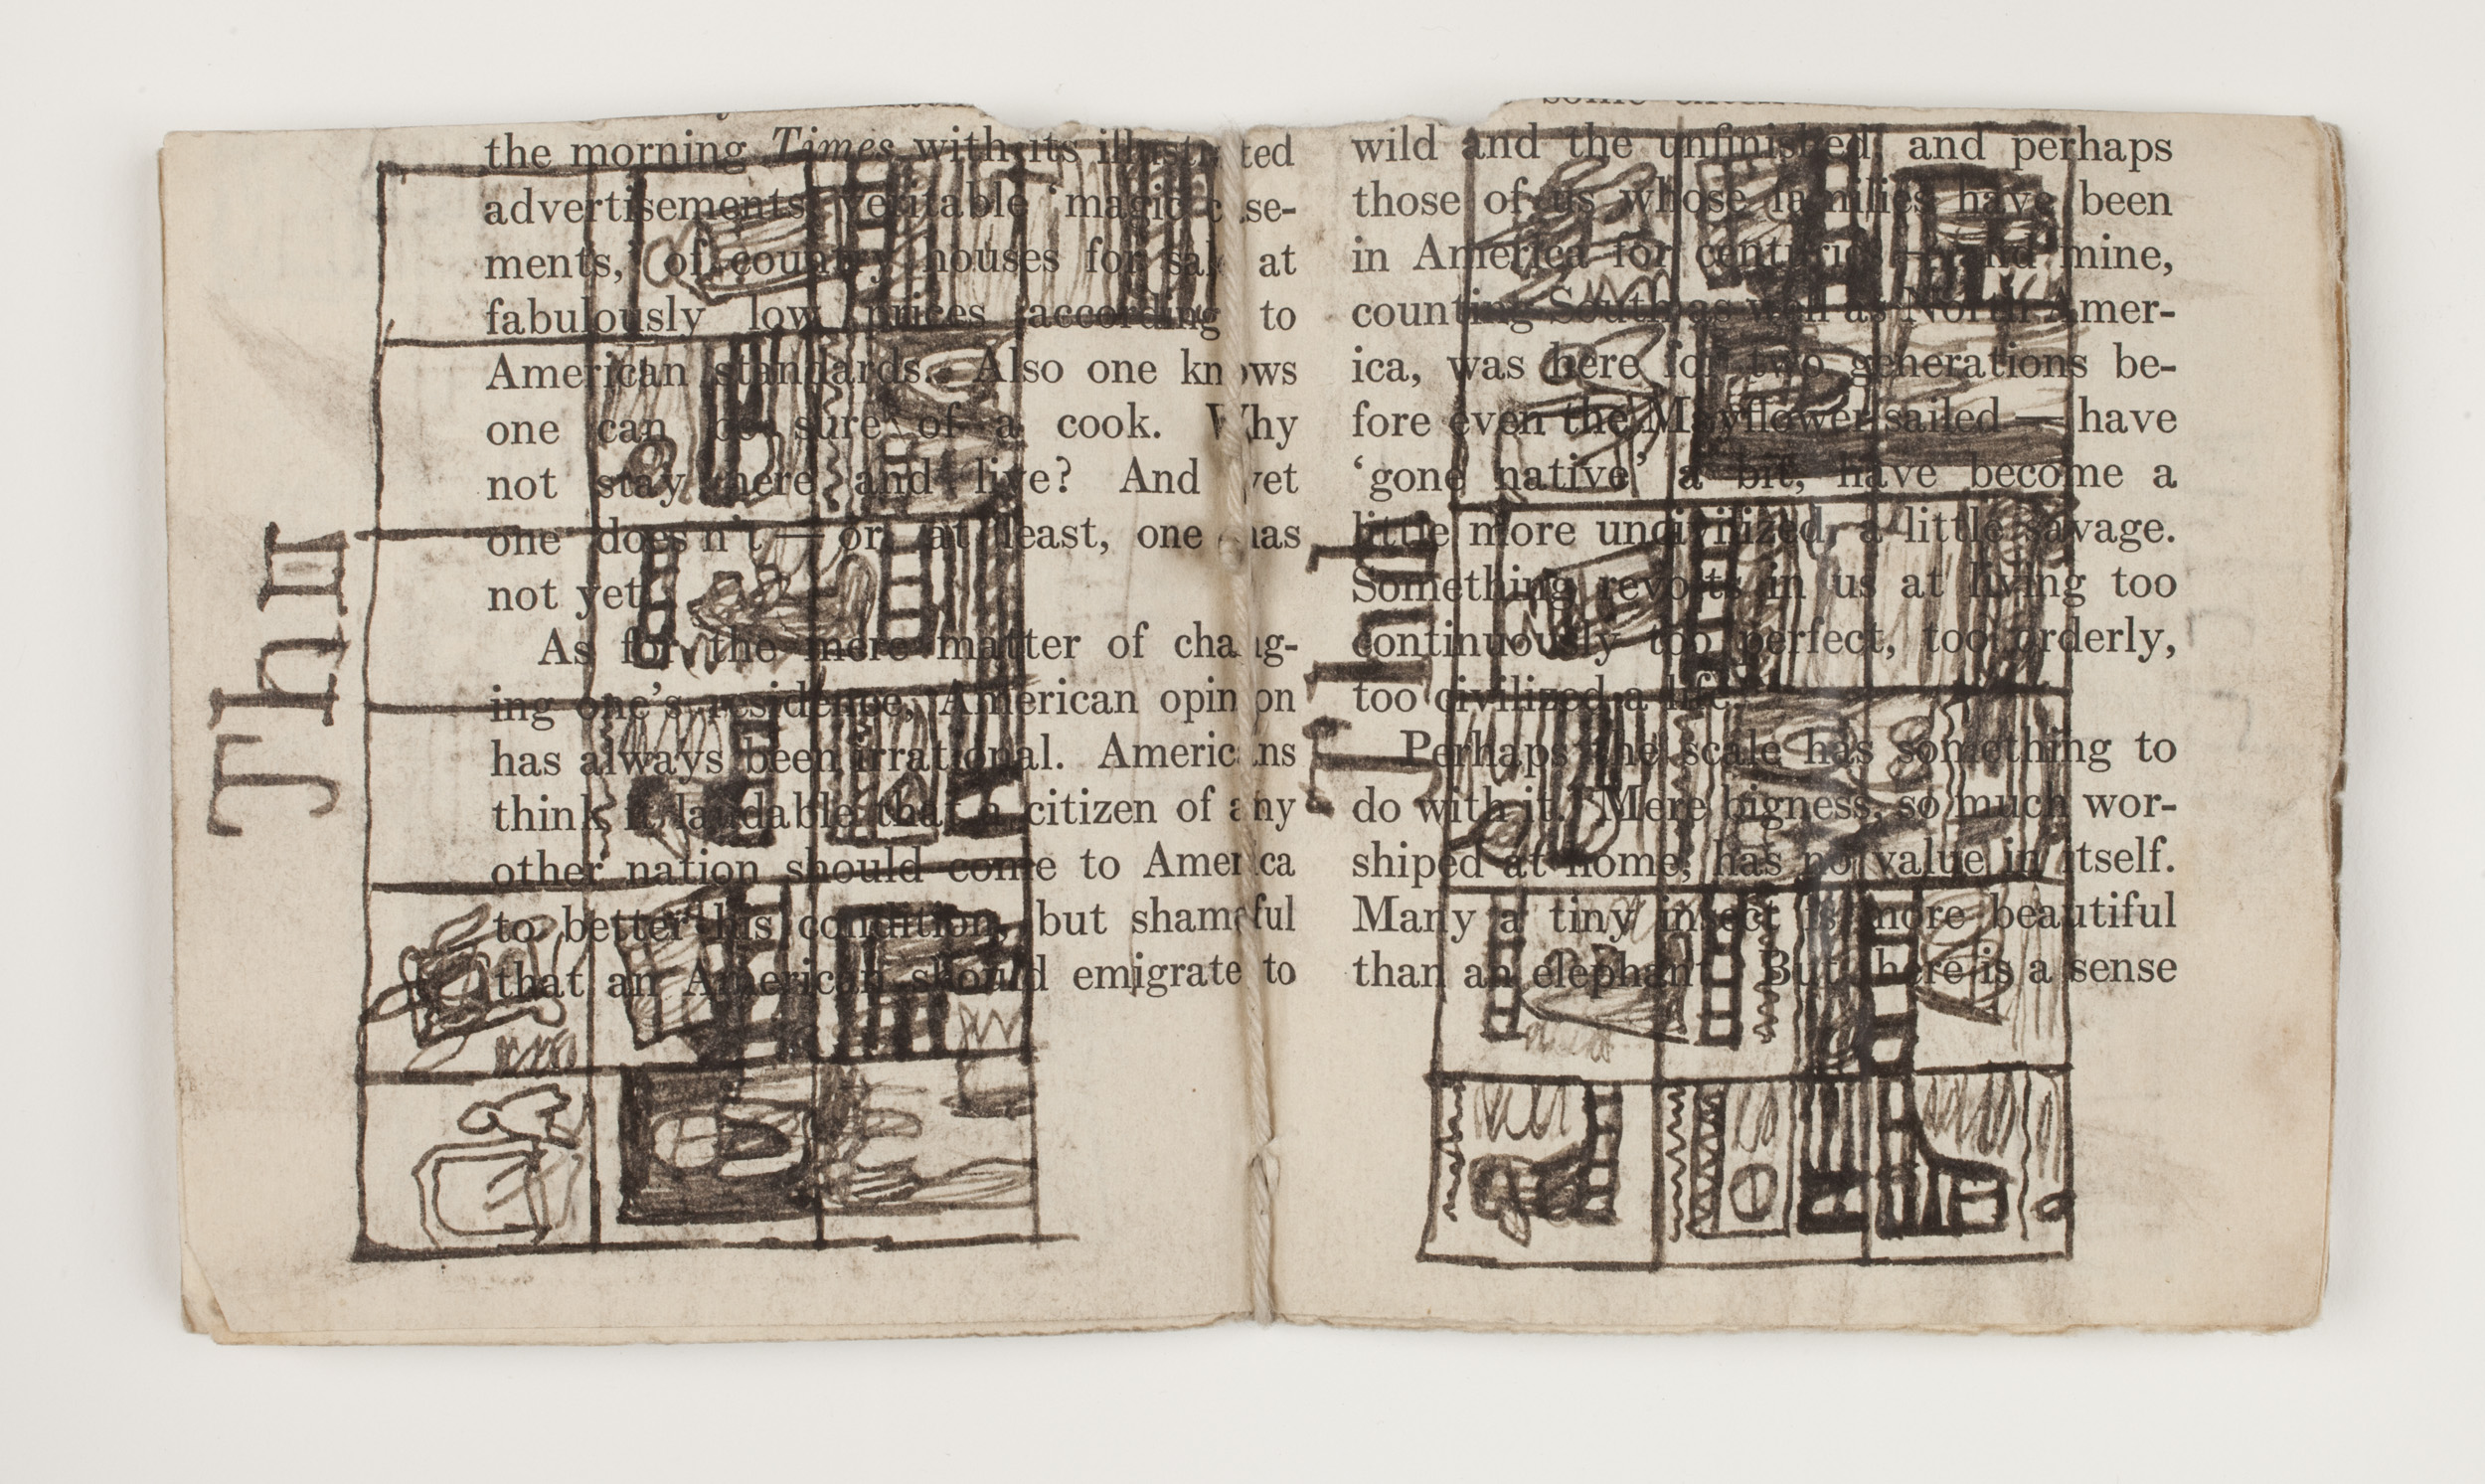 the morning Times with its illustrated
advertisements, veritable 'magic case-
ments,' of country houses for sale at
fabulously low prices according to
American standards. Also one knows
one can be sure of a cook. Why
not stay here and live? And yet
one doesn't — or, at least, one has
not yet.
As for the mere matter of chang-
ing one's residence, American opinion
has always been irrational. Americans
think it laudable that a citizen of any
other nation should come to America
to better his condition, but shameful
that an American should emigrate to
some
wild and the unfinished, and perhaps
those of us whose families have been
in America for centuries — and mine,
counting South as well as North Amer-
ica, was here for two generations be-
fore even the Mayflower sailed — have
'gone native' a bit, have become a
little more uncivilized, a little savage.
Something revolts in us at living too
continuously too perfect, too orderly,
too civilized a life.
Perhaps the scale has something to
do with it. Mere bigness, so much wor-
shiped at home, has no value in itself.
Many a tiny insect is more beautiful
than an elephant. But there is a sense